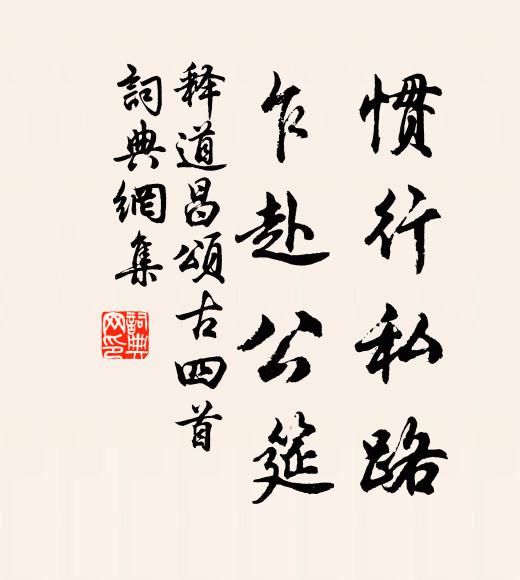 惯行私路
乍赴公筵
释道昌頌古四首
詞典網集
詞典网印